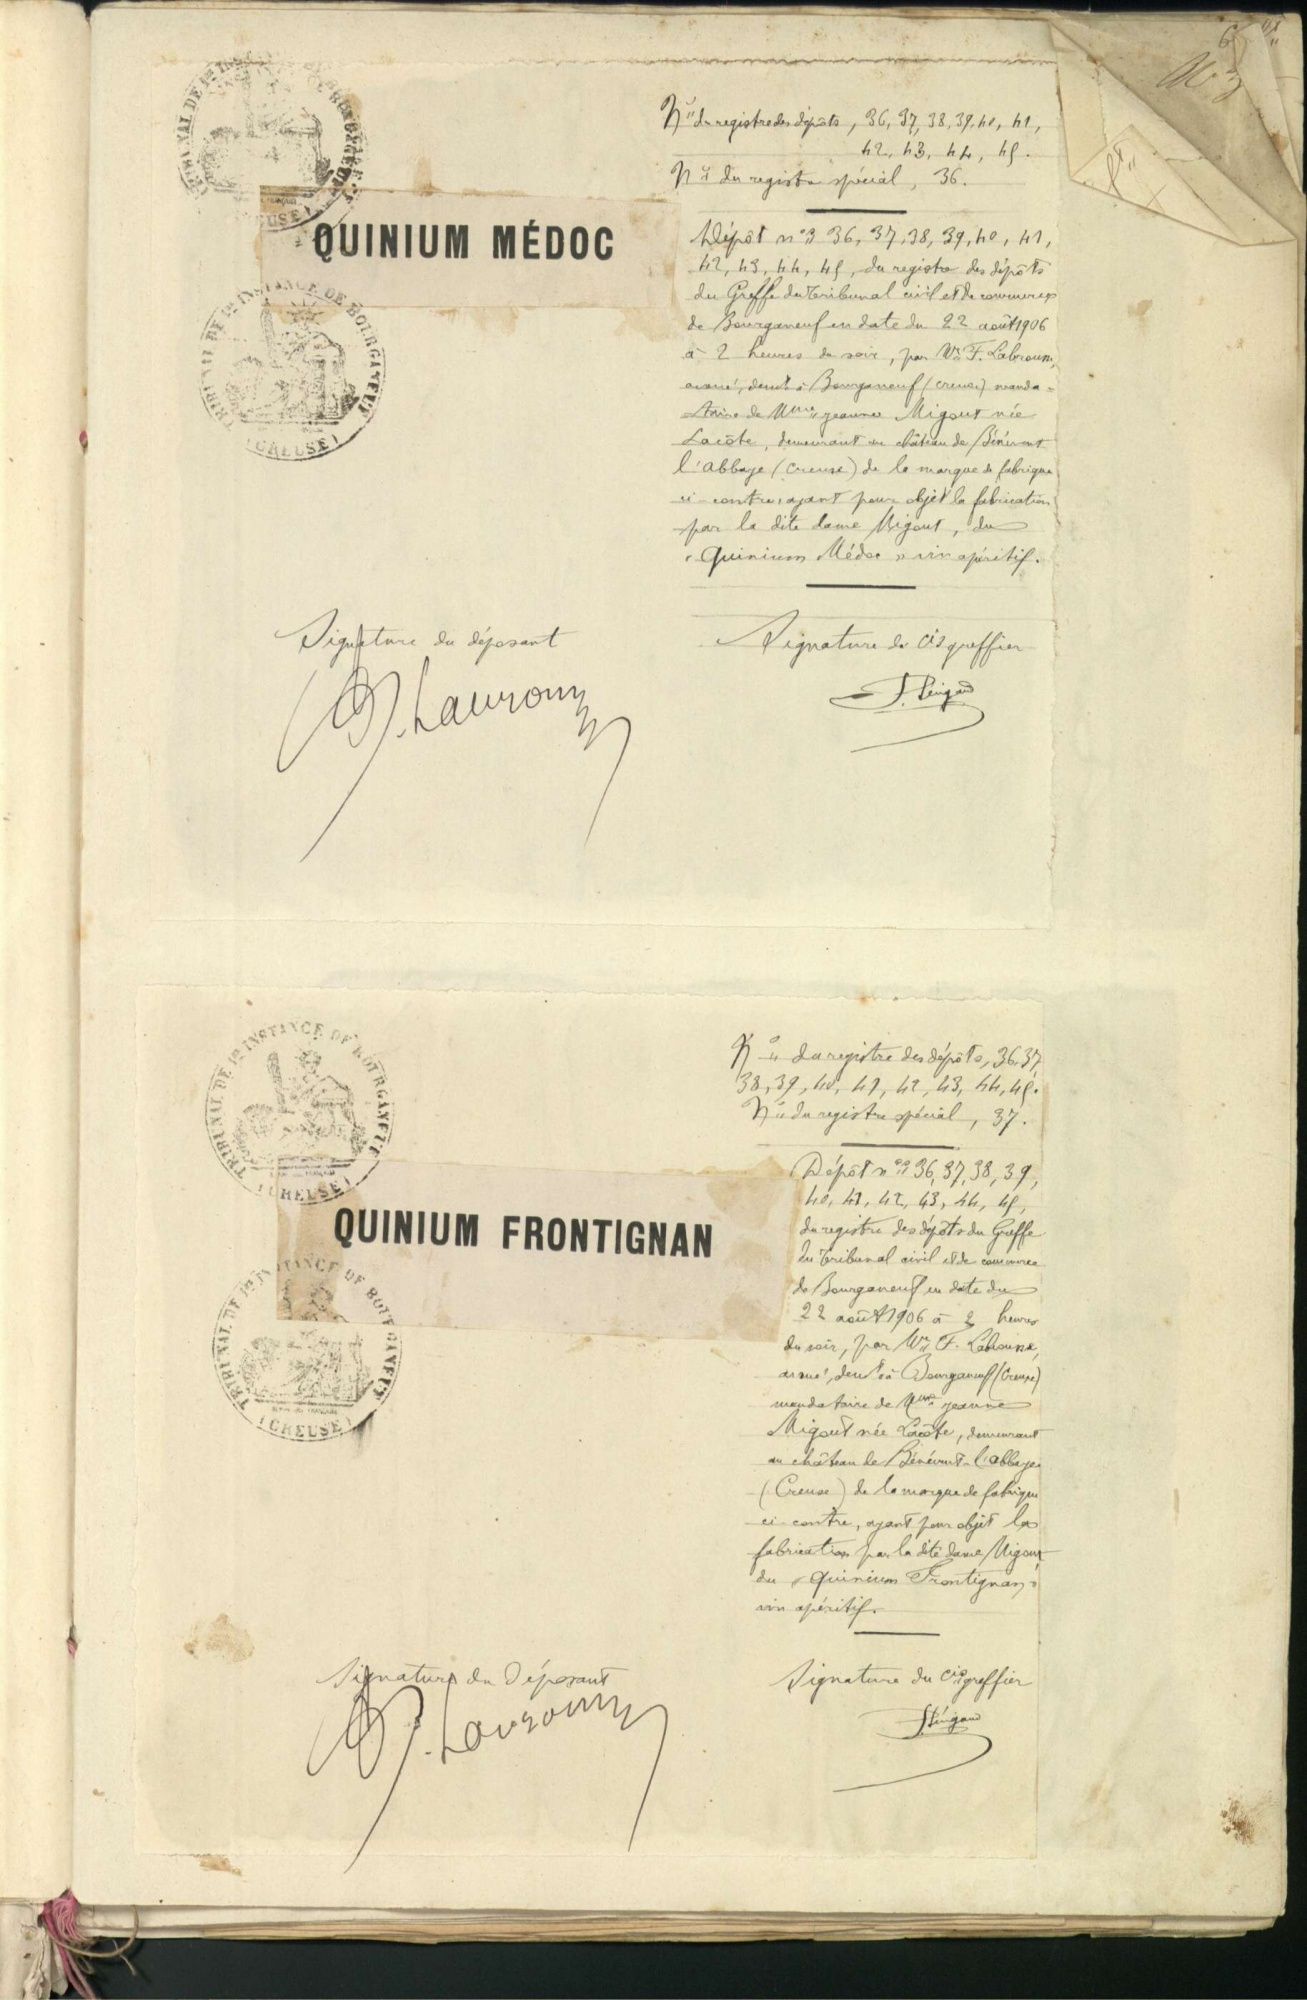 TRIBUNAL DE 1re INSTANCE DE BOURGANEUF
(CREUSE)
QUINIUM MÉDOC
TRIBUNAL DE 1re INSTANCE DE BOURGANEUF
(CREUSE)
Nos du registre des dépôts, 36, 37, 38, 39, 40, 41,
42, 43, 44, 45.
No du registre spécial, 36.
Dépôt nos 36, 37, 38, 39, 40, 41,
42, 43, 44, 45, du registre des dépôts
du Greffe du Tribunal civil et de commerce
de Bourganeuf en date du 22 août 1906
à 2 heures du soir, par Me F. Labrousse,
avoué, demt à Bourganeuf (Creuse) manda-
taire de Mme Jeanne Migout née
Lacôte, demeurant au château de Bénévent
l'abbaye (Creuse) de la marque de fabrique
ci-contre, ayant pour objet la fabrication
par la dite dame Migout, du
« Quinium Médoc » vin apéritif.
Signature du déposant
Signature du cis greffier
TRIBUNAL DE 1re INSTANCE DE BOURGANEUF
(CREUSE)
QUINIUM FRONTIGNAN
TRIBUNAL DE 1re INSTANCE DE BOURGANEUF
(CREUSE)
No du registre des dépôts, 36, 37,
38, 39, 40, 41, 42, 43, 44, 45.
No du registre spécial, 37.
Dépôt nos 36, 37, 38, 39,
40, 41, 42, 43, 44, 45,
du registre des dépôts du Greffe
du Tribunal civil et de commerce
de Bourganeuf en date du
22 août 1906 à 2 heures
du soir, par Me F. Labrousse,
avoué, demt à Bourganeuf (Creuse)
mandataire de Mme Jeanne
Migout née Lacôte, demeurant
au château de Bénévent-l'abbaye
(Creuse) de la marque de fabrique
ci-contre, ayant pour objet la
fabrication par la dite dame Migout
du « Quinium Frontignan »
vin apéritif.
Signature du Déposant
Signature du cis greffier